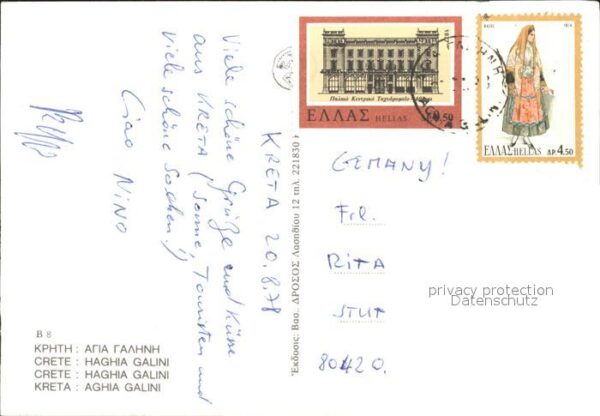 KRETA 20.8.78
Viele schöne Grüße und Küsse
aus KRETA (Sonne, Touristen und
viele schöne Sachen!)
Ciao NINO
B 8
ΚΡΗΤΗ : ΑΓΙΑ ΓΑΛΗΝΗ
CRETE : HAGHIA GALINI
CRETE : HAGHIA GALINI
KRETA : AGHIA GALINI
Ἐκδοσις: Βασ. ΔΡΟΣΟΣ Λασηθίου 12 τηλ. 221830
ΕΛΛΑΣ HELLAS
ΕΛΛΑΣ HELLAS ΔΡ 4.50
GEMANY!
Frl.
RITA
STUT
80420.
privacy protection
Datenschutz